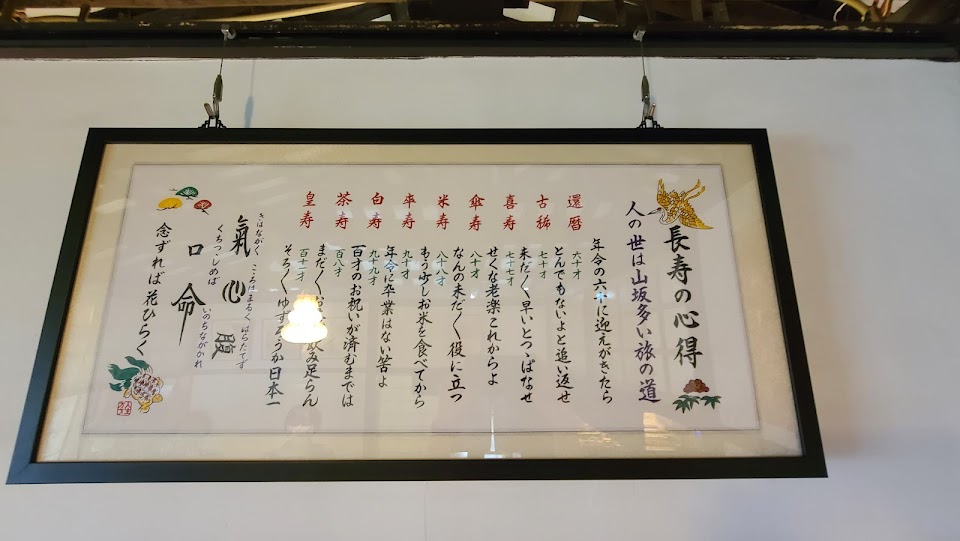 長寿の心得
人の世は山坂多い旅の道
年令の六十に迎えがきたら
還暦 六十才
とんでもないよと追い返せ
古稀 七十才
未だ〱早いとつゝぱなせ
喜寿 七十七才
せくな老楽これからよ
傘寿 八十才
なんの未だ〱役に立つ
米寿 八十八才
もう少しお米を食べてから
卒寿 九十才
年令に卒業はない筈よ
白寿 九十九才
百才のお祝いが済むまでは
茶寿 百八才
まだ〱お飲み足らん
皇寿 百十一才
そろ〱ゆずろうか日本一
きはながく こころはまるく はらたてず
氣 心 腹
くちつゝしめば いのちながかれ
口 命
念ずれば花ひらく